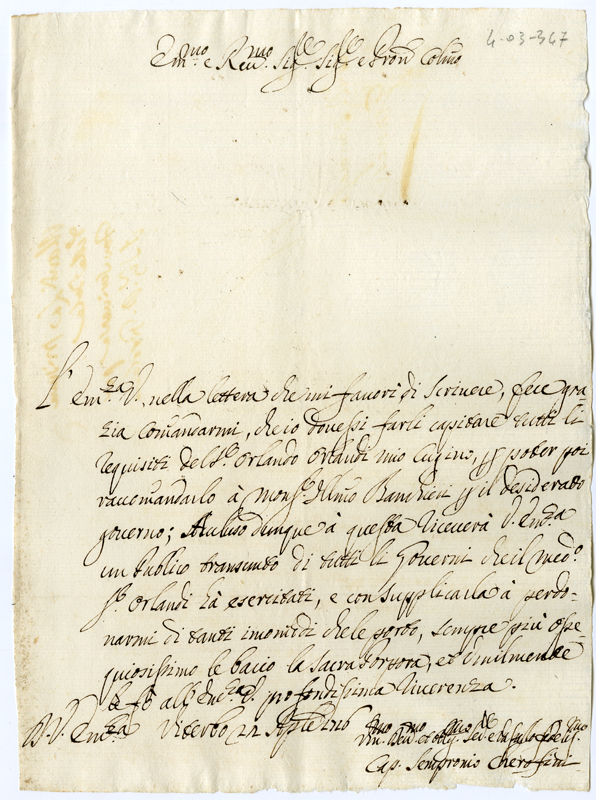 4-03-347
Em.mo e Rev.mo Sig.r Sig.r e Pron Colmo
L' Em.za V. nella lettera che mi favorì di scrivere, fece gra-
zia comandarmi, che io dovessi farli capitare tutti li
requisiti del S.r Orlando Orlandi mio cugino, p poter poi
raccomandarlo à Mons.r Ill.mo Banchieri p il desiderato
governo; Accluso dunque à questa riceverà V. Em.za
un Publico transunto di tutti li Governi che il med.o
S.r Orlandi hà esercitati, e con supplicarla à perdo-
narmi di tanti incomodi che le porto, sempre più osse-
quiosissimo le baccio la Sacra Porpora, et humilmente
le fò all' Em.za V. profondissima riverenza.
D. V. Em.za Viterbo 22 Aple 1716
Cap. Sempronio Cherofini